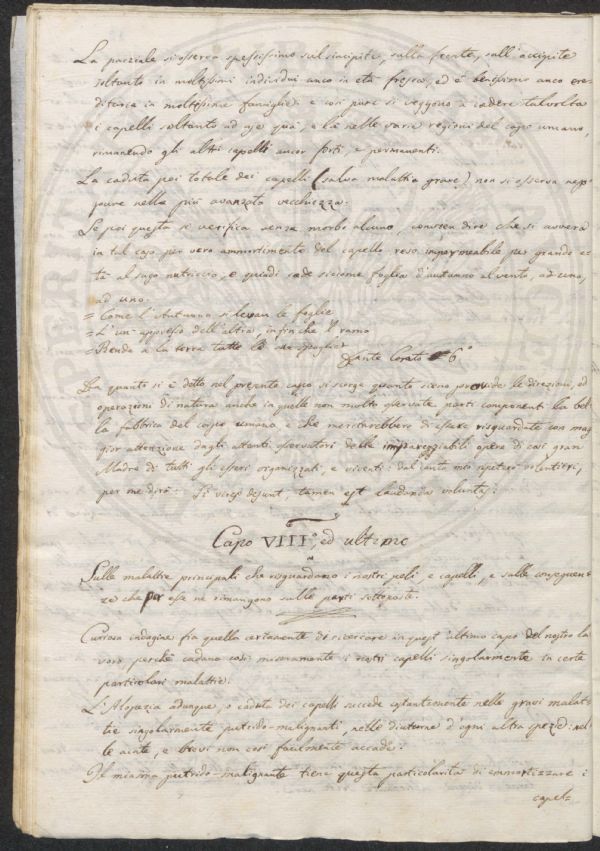 La parziale si osserva spessissimo sul sincipite, sulla fronte, sull'occipite
soltanto in moltissimi individui anco in età fresca, ed è benissimo anco ere-
ditaria in moltissime famiglie: e così pure si veggono a cadere talvolta
i capelli soltanto ad uso quà, e là nelle varie regioni del capo umano,
rimanendo gli altri capelli ancor forti, e permanenti.
La caduta poi totale dei capelli (salva malattia grave) non si osserva nep-
pure nella più avanzata vecchiezza.
Se poi questa si verifica senza morbo alcuno, convien dire che si avverà
in tal caso per vero ammortimento del capello reso impermeabile per grande e-
tà al sugo nutriccio, e quindi cade siccome foglia d'autunno al vento, ad una,
ad una.
= Come l'Autunno si levan le foglie
= L'un appresso dell'altra, infin che 'l ramo
= Rende a la terra tutte le sue spoglie
Dante Canto 6°
Da quanto si è detto nel presente capo si scorge quanto sieno provvide le direzioni, ed
operazioni di natura anche in quelle non molto osservate parti componenti la bel-
la fabbrica del corpo umano, e che meritarebbero di essere risguardate con mag-
gior attenzione dagli attenti osservatori delle impareggiabili opere di così gran
Madre di tutti gli esseri organizzati, e viventi: dal canto mio ripeterò volentieri,
per me dirò = Si vires desunt, tamen est laudanda voluntas:
Capo VIII°, ed ultimo
Sulle malattie principali che risguardano i nostri peli, e capelli, e sulle conseguen-
ze che per esse ne rimangono sulle parti sottoposte.
Curiosa indagine fia quella certamente di ricercare in quest'ultimo capo del nostro la-
voro perchè cadano così miseramente i nostri capelli singolarmente in certe
particolari malattie.
L'Alopezia adunque, o caduta dei capelli succede costantemente nelle gravi malat-
tie singolarmente putrido-malignanti, nelle diuturne d'ogni altra spezie: nel-
le acute, e brevi non così facilmente accade.
Il miasma putrido-malignante tiene questa particolarità di ammortizzare i
capel=